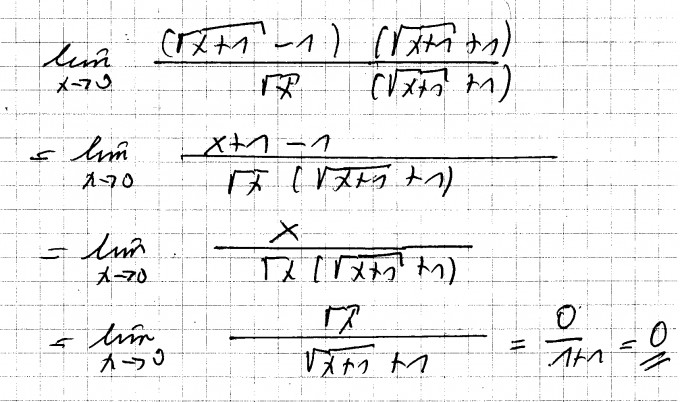 lim x→0 (√(x+1) − 1) (√(x+1) + 1) / √x (√(x+1) + 1)
= lim x→0 x+1−1 / √x (√(x+1) + 1)
= lim x→0 x / √x (√(x+1) + 1)
= lim x→0 √x / √(x+1) + 1 = 0 / 1+1 = 0